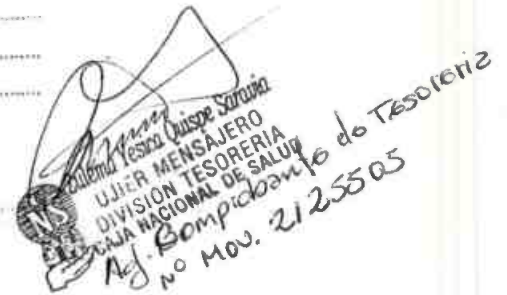 Yesica Quispe Saravia
UJIER MENSAJERO
DIVISIÓN TESORERIA
CAJA NACIONAL DE SALUD
Adj. Bomprobante de Tesoreria
Nº MOV. 2125505